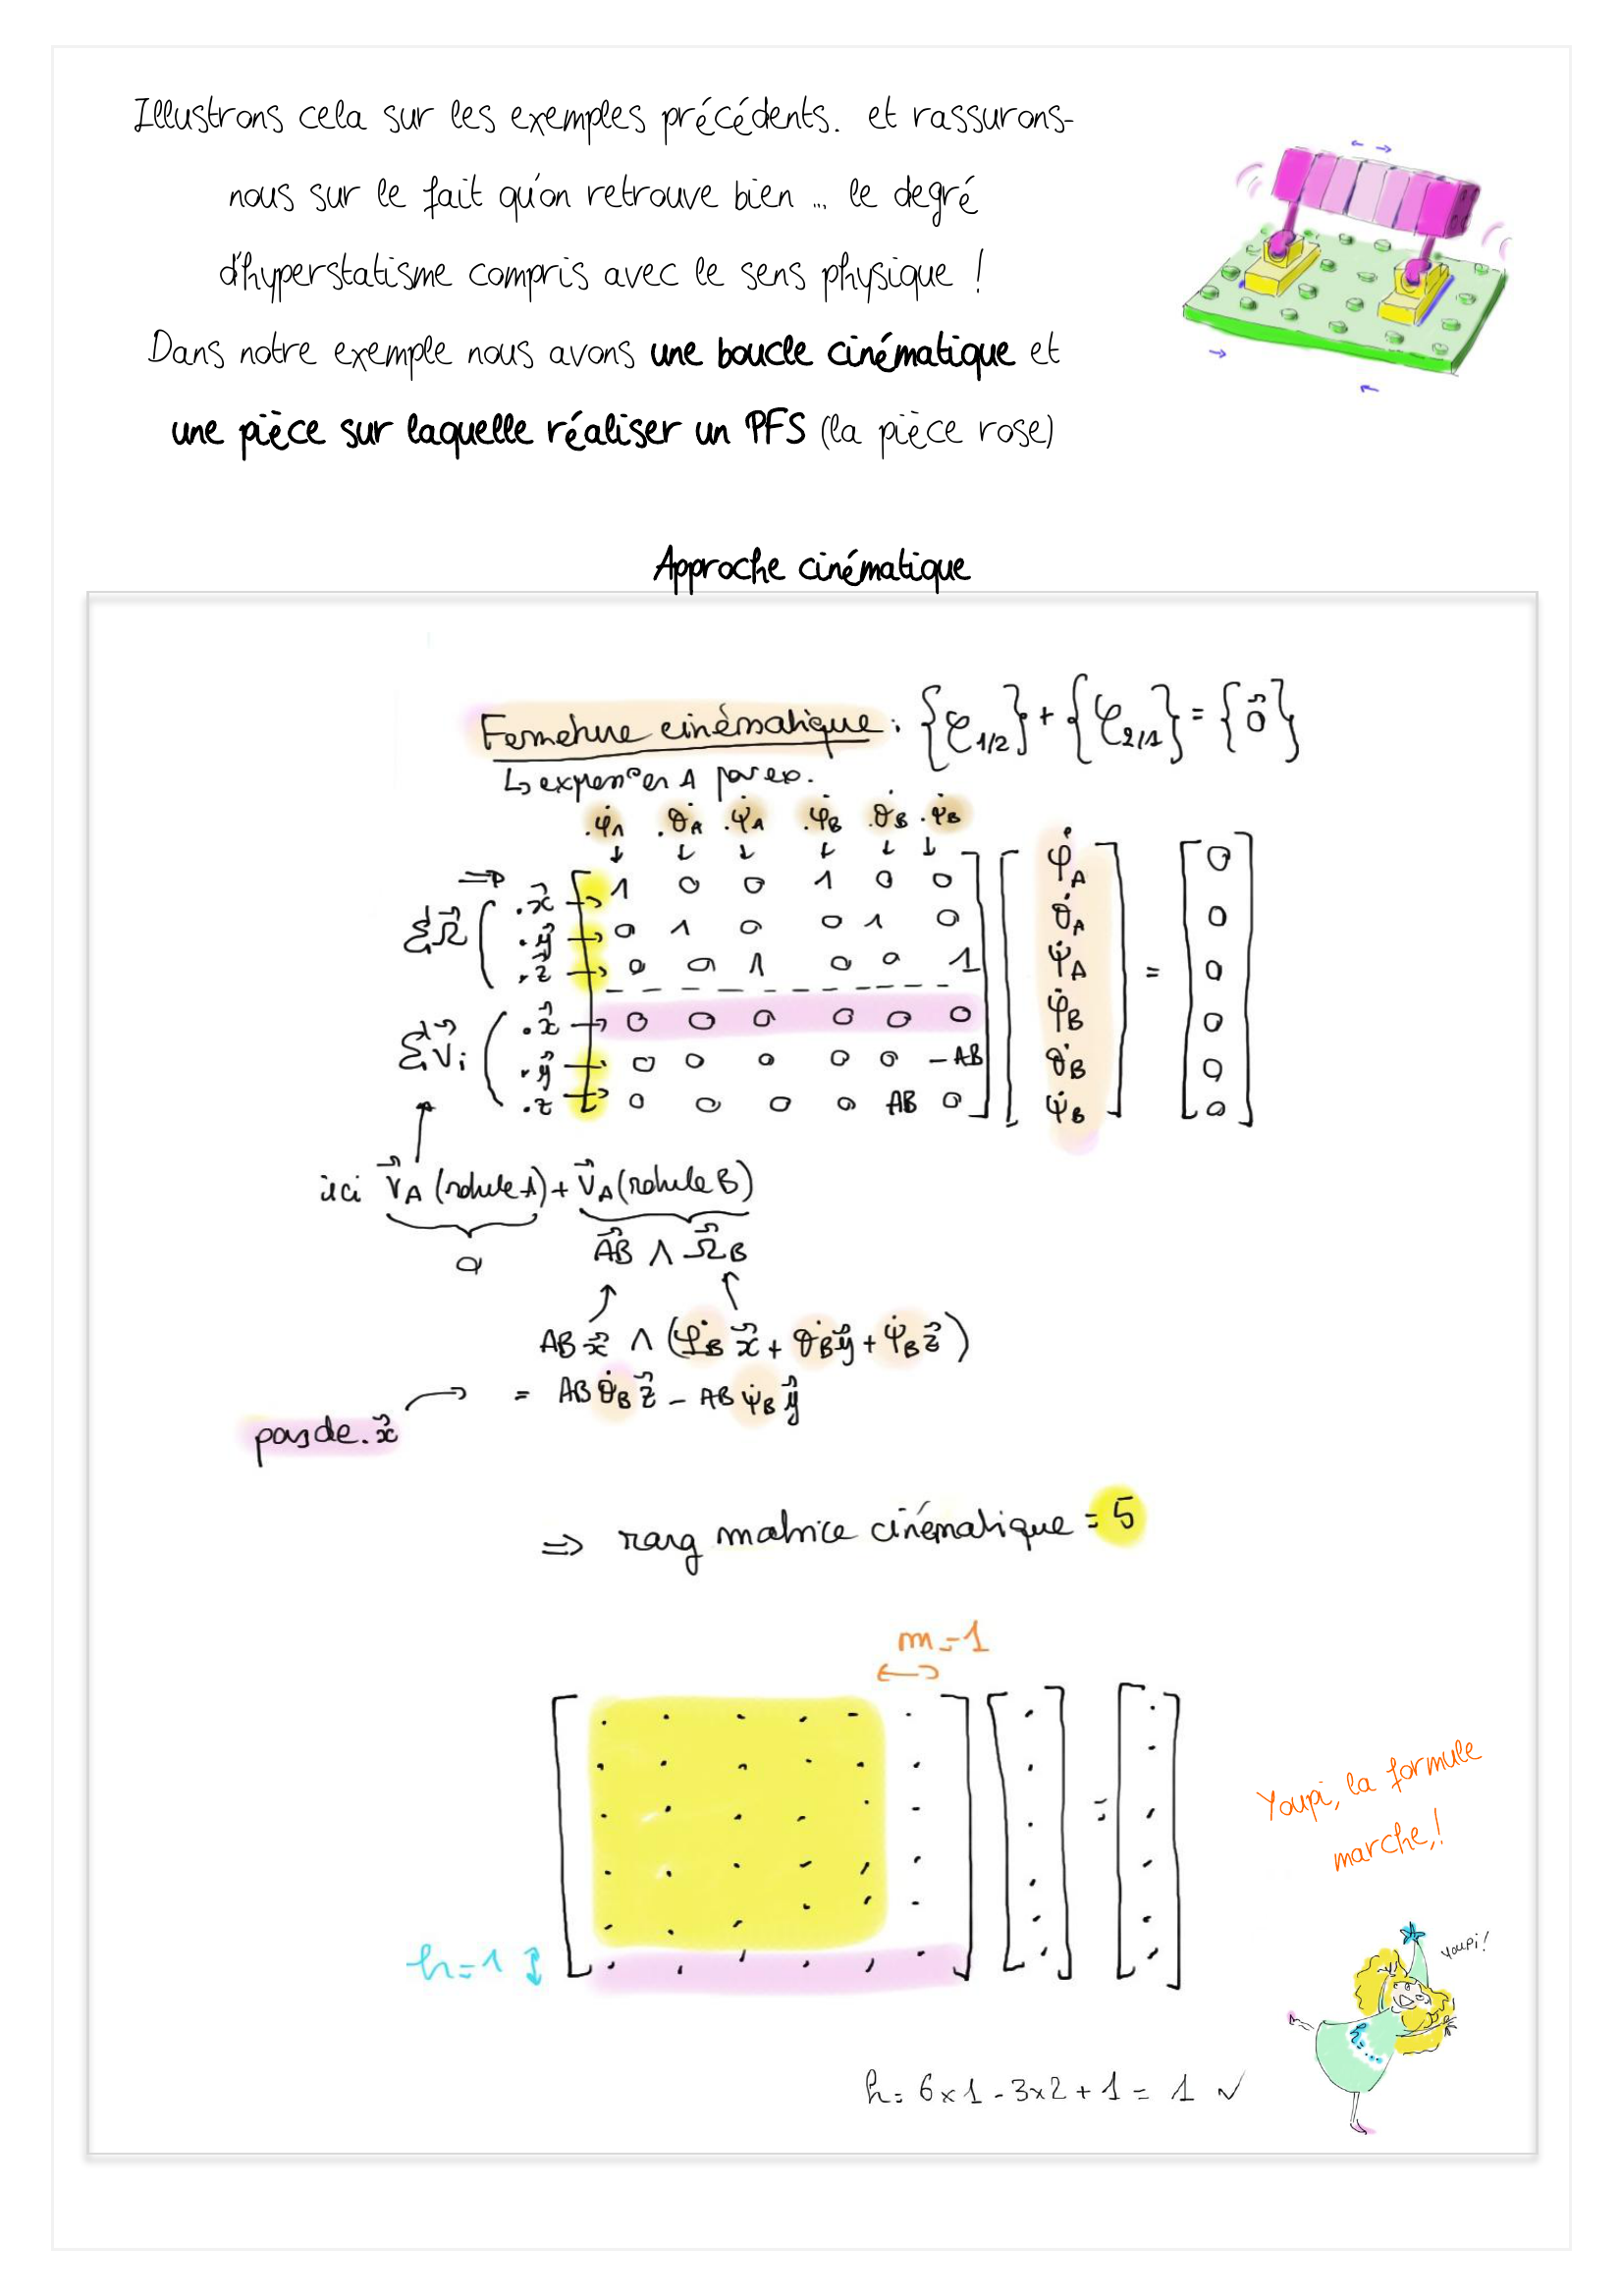 Illustrons cela sur les exemples précédents. et rassurons-
nous sur le fait qu'on retrouve bien ... le degré
d'hyperstatisme compris avec le sens physique !
Dans notre exemple nous avons une boucle cinématique et
une pièce sur laquelle réaliser un PFS (la pièce rose)
Approche cinématique
Fermeture cinématique : {𝒞1/2} + {𝒞2/1} = {0⃗}
↳ expression en A par ex.
.φ̇A .θ̇A .ψ̇A .φ̇B .θ̇B .ψ̇B
↓ ↓ ↓ ↓ ↓ ↓
⇒ ΣΩ⃗ ( .x⃗ → 1 0 0 1 0 0 φ̇A 0
.y⃗ → 0 1 0 0 1 0 θ̇A 0
.z⃗ → 0 0 1 0 0 1 ψ̇A = 0
ΣV⃗i ( .x⃗ → 0 0 0 0 0 0 φ̇B 0
.y⃗ → 0 0 0 0 0 -AB θ̇B 0
.z → 0 0 0 0 AB 0 ψ̇B 0
ici V⃗A (rotule A) + V⃗A (rotule B)
0 AB⃗ ∧ Ω⃗B
AB x⃗ ∧ (φ̇B x⃗ + θ̇B y⃗ + ψ̇B z⃗)
= AB θ̇B z⃗ - AB ψ̇B y⃗
pas de .x⃗
⇒ rang matrice cinématique = 5
m=1
h=1
Youpi, la formule
marche,!
Youpi!
h= 6x1 - 3x2 + 1 = 1 ✓